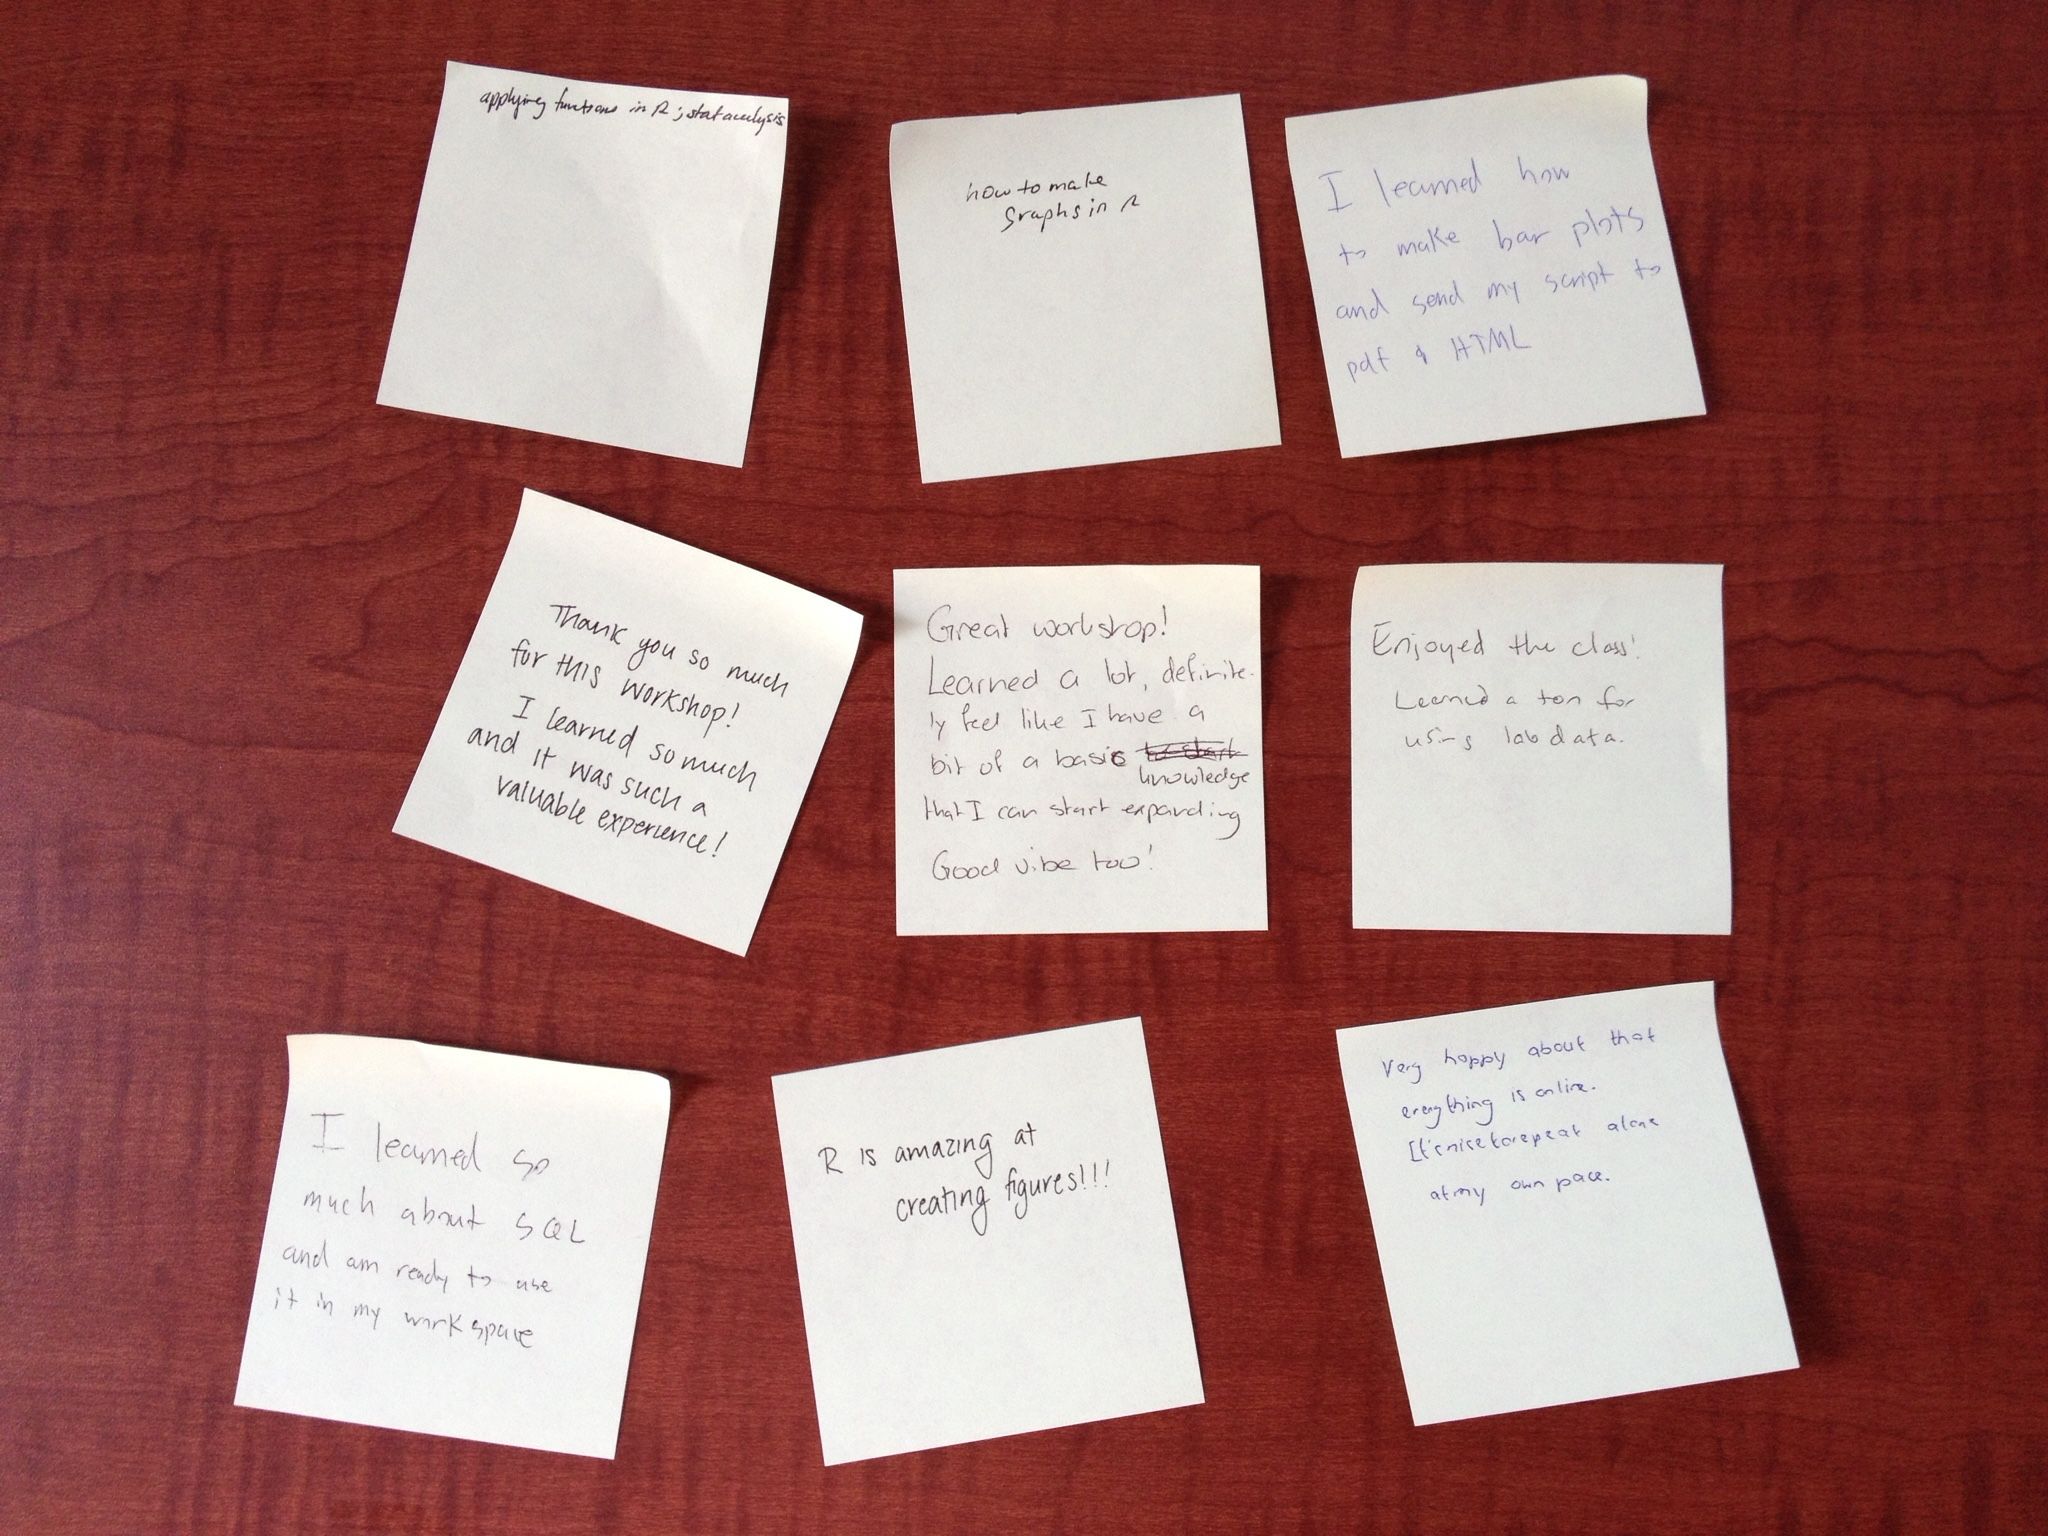 applying functions in R ; stat analysis
how to make
graphs in R
I learned how
to make bar plots
and send my script to
pdf & HTML
Thank you so much
for this workshop!
I learned so much
and it was such a
valuable experience!
Great workshop!
Learned a lot, definite-
ly feel like I have a
bit of a basic to start
knowledge
that I can start expanding
Good vibe too!
Enjoyed the class!
Learned a ton for
using lab data.
I learned so
much about SQL
and am ready to use
it in my workspace
R is amazing at
creating figures!!!
Very happy about that
everything is online.
It's nice to repeat alone
at my own pace.